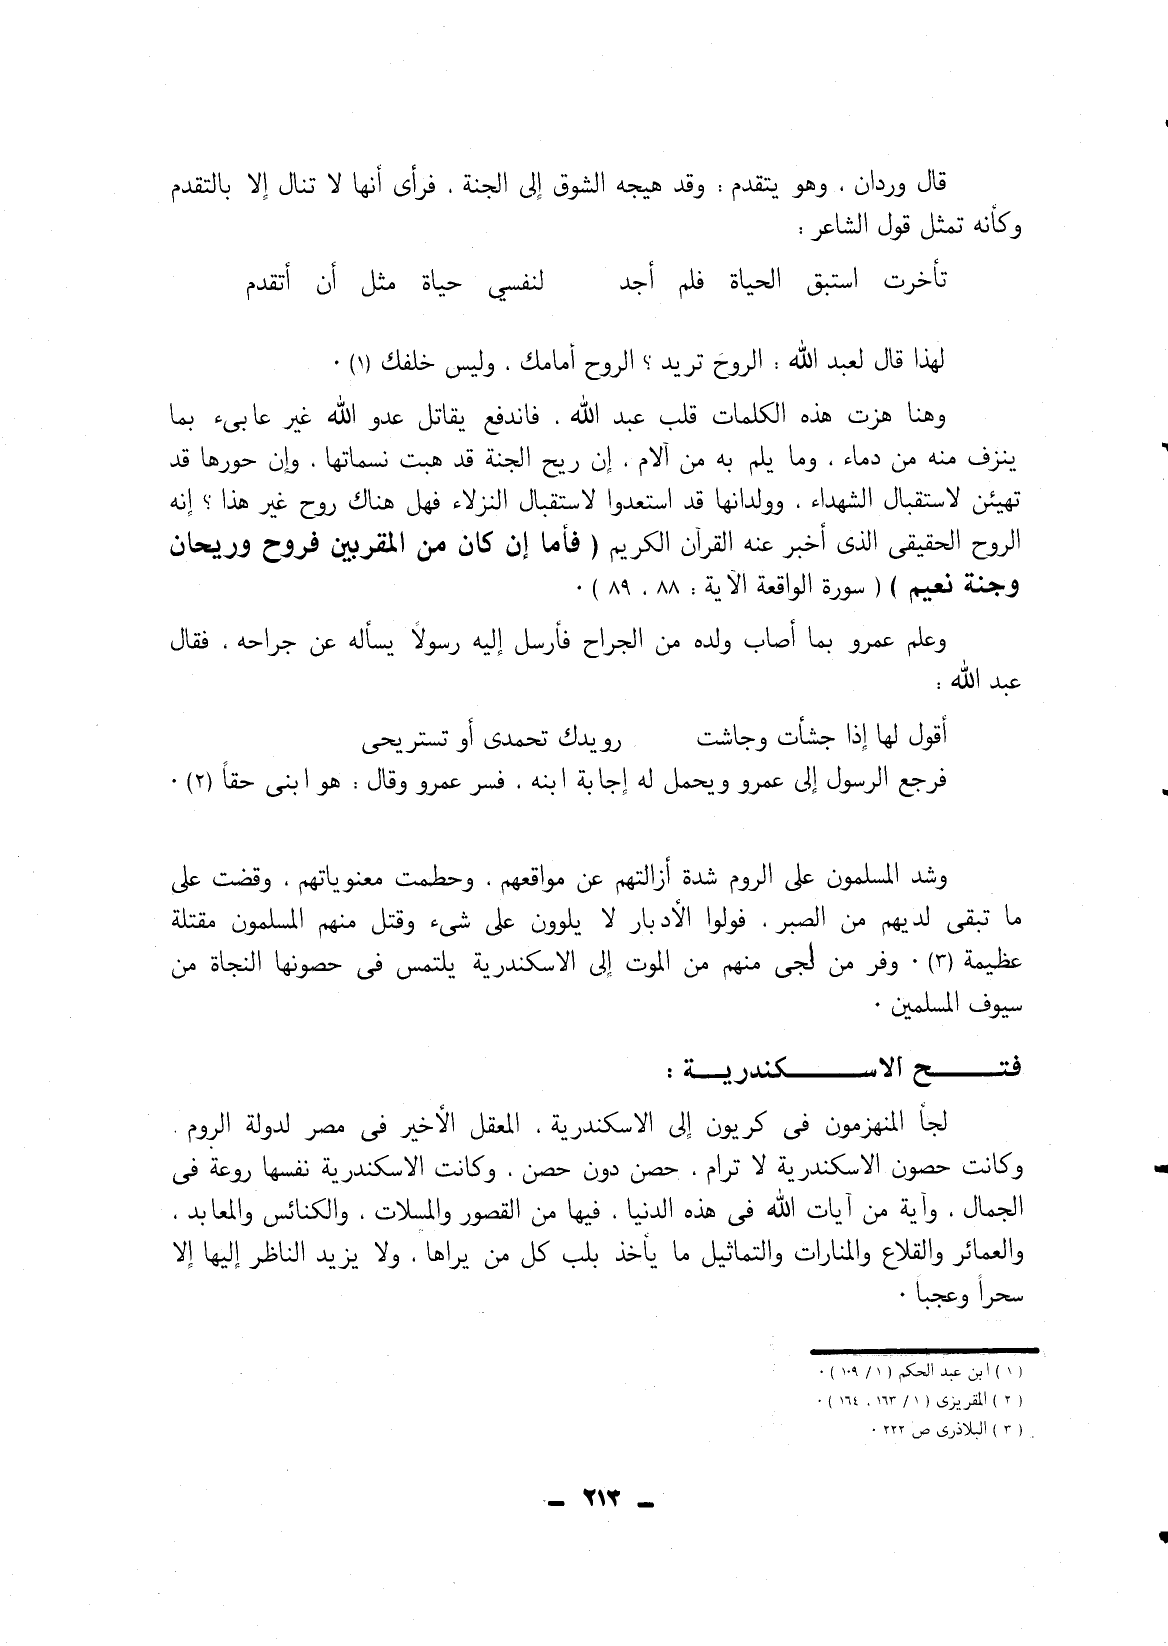 قال وردان ، وهو يتقدم : وقد هيجه الشوق إلى الجنة ، فرأى أنها لا تنال إلا بالتقدم
وكأنه تمثل قول الشاعر :
تأخرت استبق الحياة فلم أجد لنفسي حياة مثل أن أتقدم
لهذا قال لعبد الله : الروحَ تريد ؟ الروح أمامك ، وليس خلفك (١) ٠
وهنا هزت هذه الكلمات قلب عبد الله ، فاندفع يقاتل عدو الله غير عابىء بما
ينزف منه من دماء ، وما يلم به من آلام ، إن ريح الجنة قد هبت نسماتها ، وإن حورها قد
تهيئن لاستقبال الشهداء ، وولدانها قد استعدوا لاستقبال النزلاء فهل هناك روح غير هذا ؟ إنه
الروح الحقيقى الذى أخبر عنه القرآن الكريم ( فأما إن كان من المقربين فروح وريحان
وجنة نعيم ) ( سورة الواقعة الآية : ٨٨ ، ٨٩ ) ٠
وعلم عمرو بما أصاب ولده من الجراح فأرسل إليه رسولاً يسأله عن جراحه ، فقال
عبد الله :
أقول لها إذا جشأت وجاشت رويدك تحمدى أو تستريحى
فرجع الرسول إلى عمرو ويحمل له إجابة ابنه ، فسر عمرو وقال : هو ابنى حقاً (٢) ٠
وشد المسلمون على الروم شدة أزالتهم عن مواقعهم ، وحطمت معنوياتهم ، وقضت على
ما تبقى لديهم من الصبر ، فولوا الأدبار لا يلوون على شىء وقتل منهم المسلمون مقتلة
عظيمة (٣) ٠ وفر من لجى منهم من الموت إلى الاسكندرية يلتمس فى حصونها النجاة من
سيوف المسلمين ٠
فتـــــح الاســـــكندريـــة :
لجأ المنهزمون فى كريون إلى الاسكندرية ، المعقل الأخير فى مصر لدولة الروم .
وكانت حصون الاسكندرية لا ترام ، حصن دون حصن ، وكانت الاسكندرية نفسها روعة فى
الجمال ، وآية من آيات الله فى هذه الدنيا ، فيها من القصور والمسلات ، والكنائس والمعابد ،
والعمائر والقلاع والمنارات والتماثيل ما يأخذ بلب كل من يراها ، ولا يزيد الناظر إليها إلا
سحراً وعجبا ٠
( ١ ) ابن عبد الحكم ( ١ / ١٠٩ ) ٠
( ٢ ) المقريزى ( ١ / ١٦٣ ، ١٦٤ ) ٠
( ٣ ) البلاذرى ص ٢٢٢ ٠
ــ ٢١٣ ــ